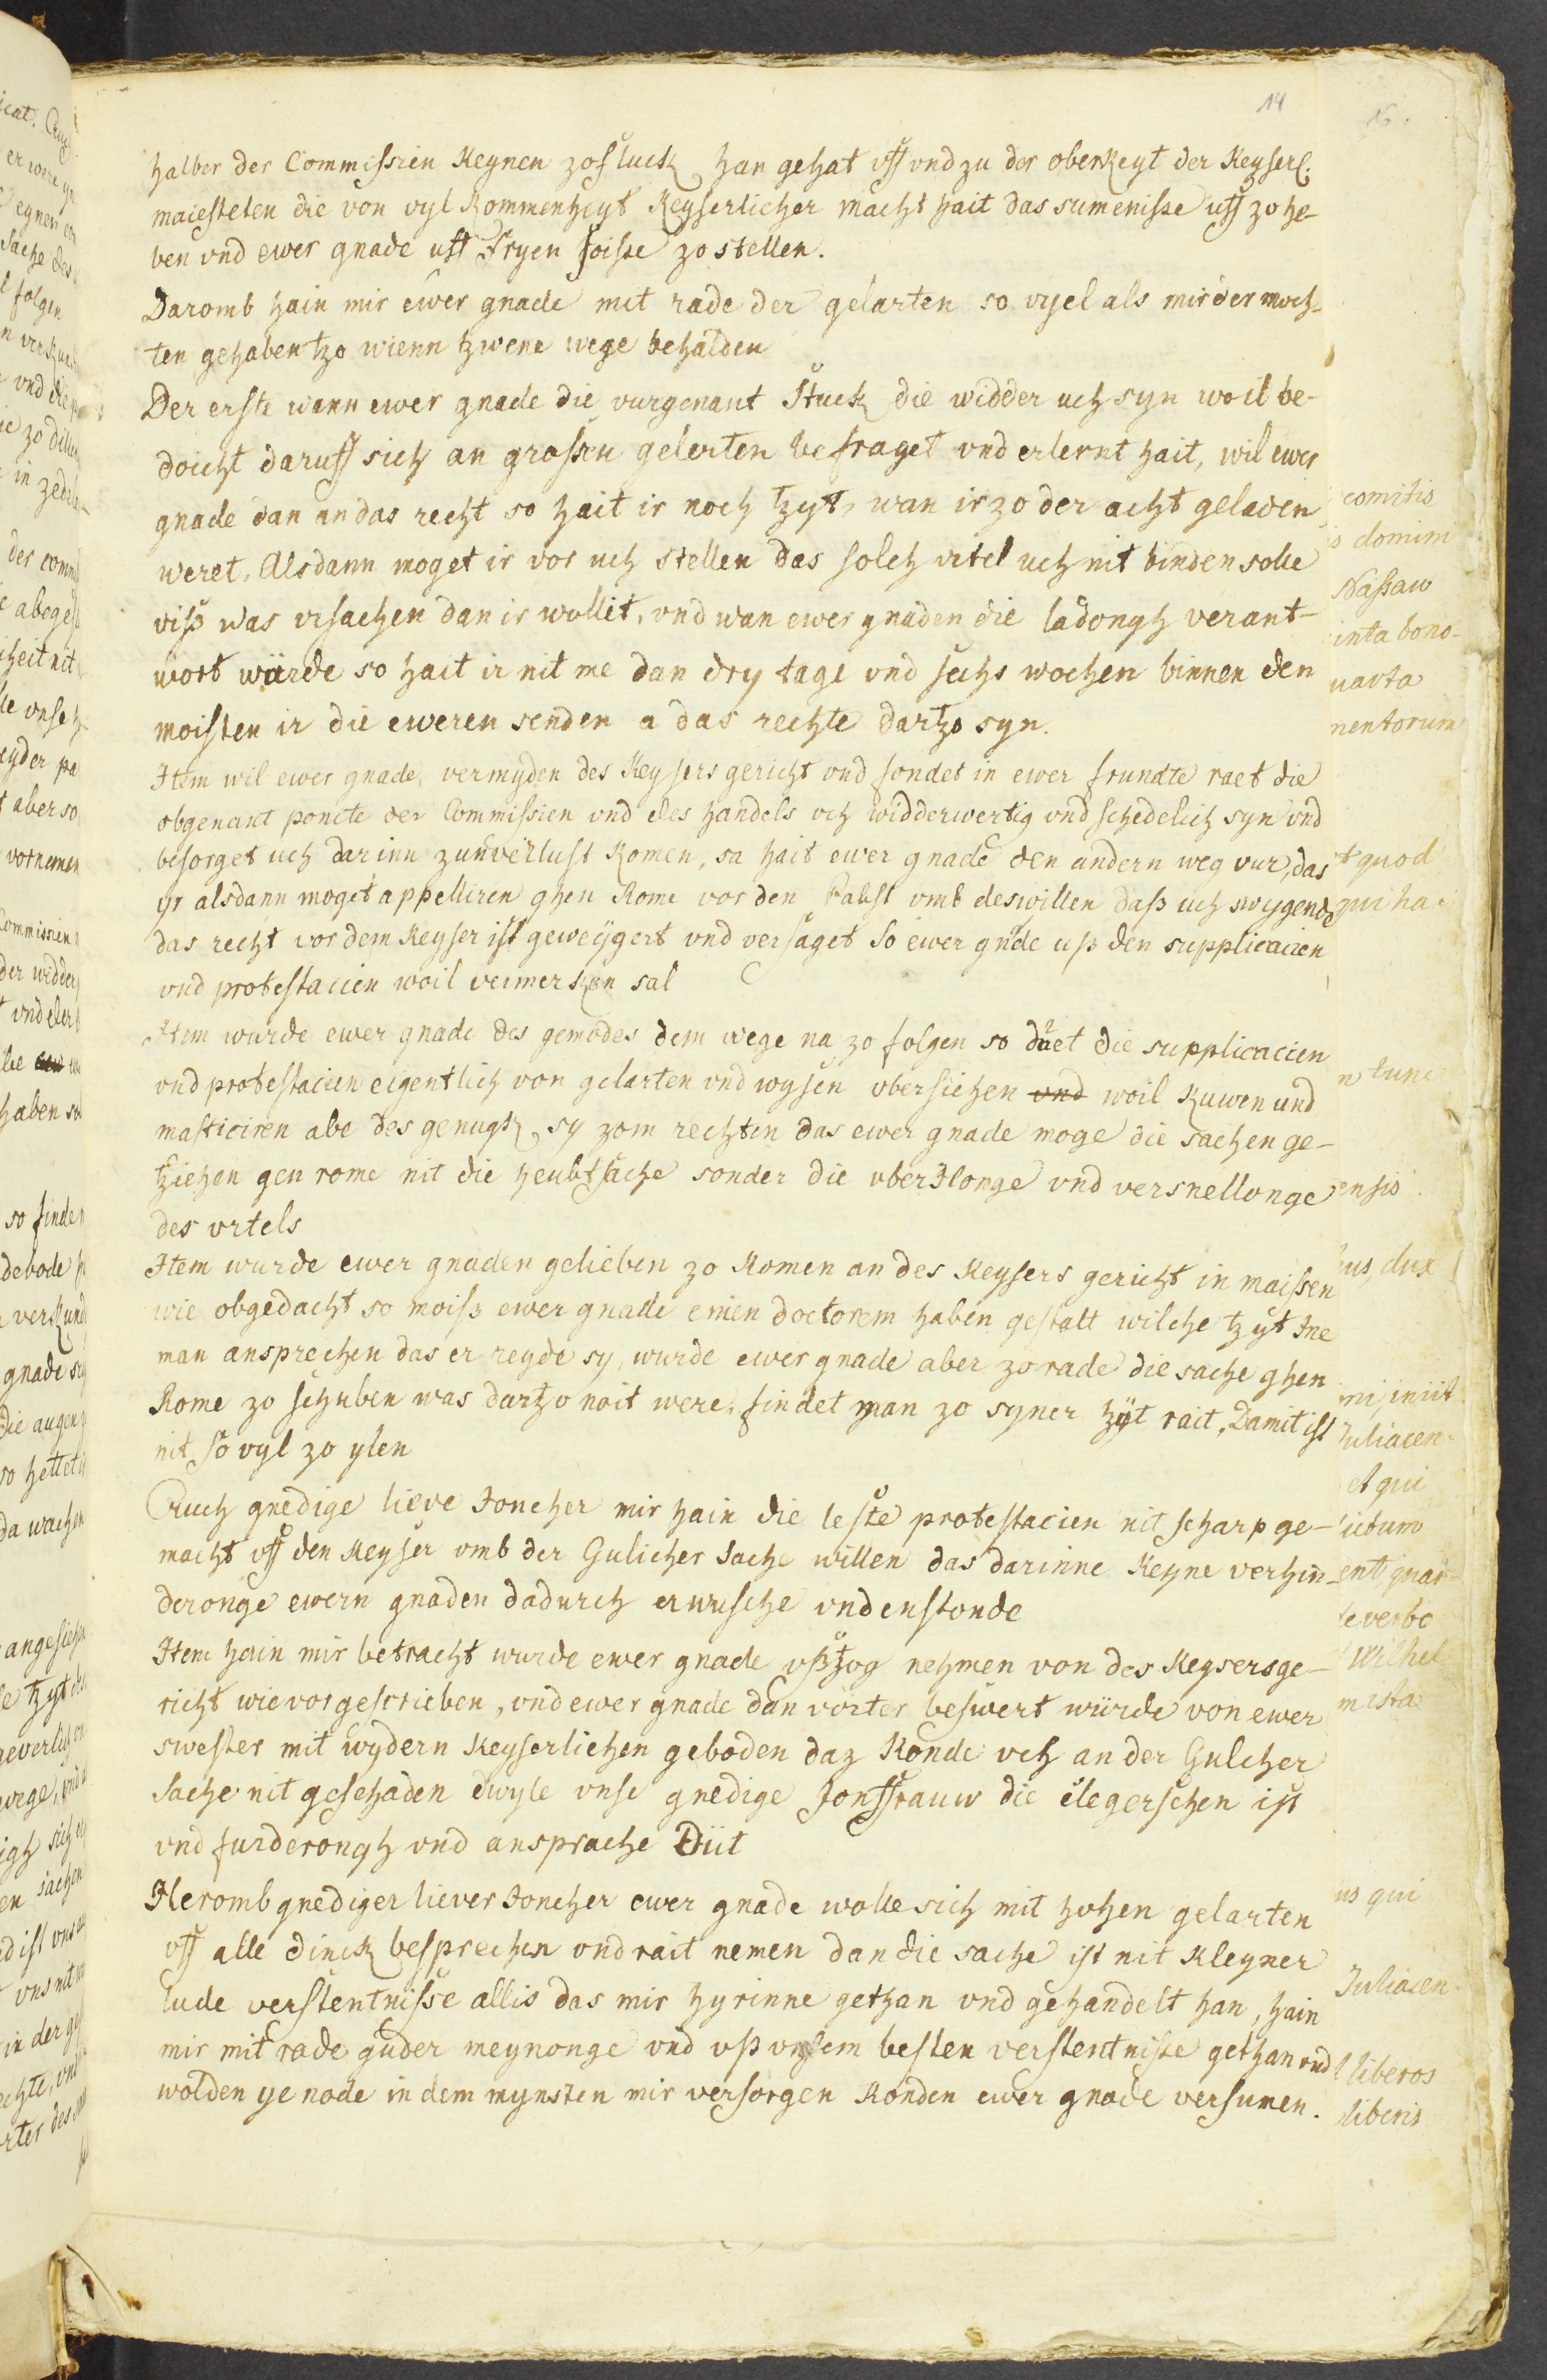 14
16.
halber der Commissien Keynen zosluck han gehat uff vnd zu der oberkeyt der Keyserl.
maiesteten die von vyl kommenheyt Keyserlicher macht hait das sumenisse uff zo he-
ben vnd ewer gnade uff Fryen foisse zo stellen.
Daromb hain mir ewer gnade mit rade der gelarten so vyel als mir der moch-
ten gehaben tzo wienn tzwene wege behalden
Der erste wann ewer gnade die vurgenant Stuck die widder uch syn woil be-
doicht daruff sich an grossen gelerten befraget vnd erlernt hait, wil ewer
gnade dan an das recht so hait ir noch tzyt, wan ir zo der acht geladen
weret, Alsdann moget ir vor uch stellen das solch vrtel uch nit binden solle
viß was vrsachen dan ir wollet, vnd wan ewer gnaden die ladongh verant-
wort wurde so hait ir nit me dan dry tage vnd sechs wochen binnen den
moisten ir die eweren senden a das rechte dartzo syn.
Item wil ewer gnade vermyden des Keysers gericht vnd fondet in ewer frundte raet die
obgenant poncte der Commissien vnd des handels uch widderwertig vnd schedelich syn vnd
besorget uch darinn zun verlust Komen, sa hait ewer gnade den andern weg vur, das
yr alsdann moget appelliren ghen Rome vor den Pabst vmb deswillen daß uch swygende
das recht vor dem Keyser ist geweygert vnd versaget So ewer gnde uß den supplicacien
vnd protestacien woil vermerken sal
Item wurde ewer gnade des gemodes dem wege na zo folgen so duet die supplicacien
vnd protestacien eigentlich von gelarten vnd wysen vbersiehen vnd woil Kuwen und
masticiren abe des genugk, sy zom rechten das ewer gnade moge die sachen ge-
tziehen gen rome nit die heubtsache sonder die vberJlonge vnd versnellonge
des vrtels
Item wurde ewer gnaden gelieben zo Komen an des Keysers gericht in maissen
wie obgedacht so moiß ewer gnade einen doctorem haben gestalt wilche tzyt Ine
man ansprechen das er reyde sy, wurde ewer gnade aber zo rade die sache ghen
Rome zo schuben was dartzo noit were, findet man zo syner tzyt rait, Damit ist
nit so vyl zo ylen
Auch gnedige lieve Joncher mir hain die leste protestacien nit scharp ge-
macht uff den Keyser vmb der Gulicher Sache willen das darinne Keyne verhin-
deronge ewern gnaden dadurch erwusche vnd enstonde
Item hain mir betracht wurde ewer gnade vßtzog nehmen von des Keysersge-
richt wie vorgescrieben, vnd ewer gnade dan vorter beswert würde von ewer
swester mit wydern Keyserlichen geboden daz Konde uch an der Gulcher
Sache nit geschaden dwyle vnse gnedige Jonffrauw die clegerschen ist
vnd furderongh vnd ansprache Düt
Heromb gnediger liever Joncher ewer gnade wolle sich mit hohen gelarten
uff alle dinck besprechen vnd rait nemen dan die sache ist nit Kleyner
lude verstentnisse allis das mir hyrinne gethan vnd gehandelt han, hain
mir mit rade guder meynonge vnd vß vnsem besten verstentnisse gethan vnd
wolden ye node in dem mynsten mir versorgen Konden ewer gnade versumen.
comitis
domini
Nassaw
inta bono-
uarta
mentorum
t quod
qui ha
n tunc
ensis
us dux
ini iniit
Juliacen-
et qui
ictum
ent quar-
e verbo
Wilhel
mista
us qui
Juliacen-
liberos
liberis